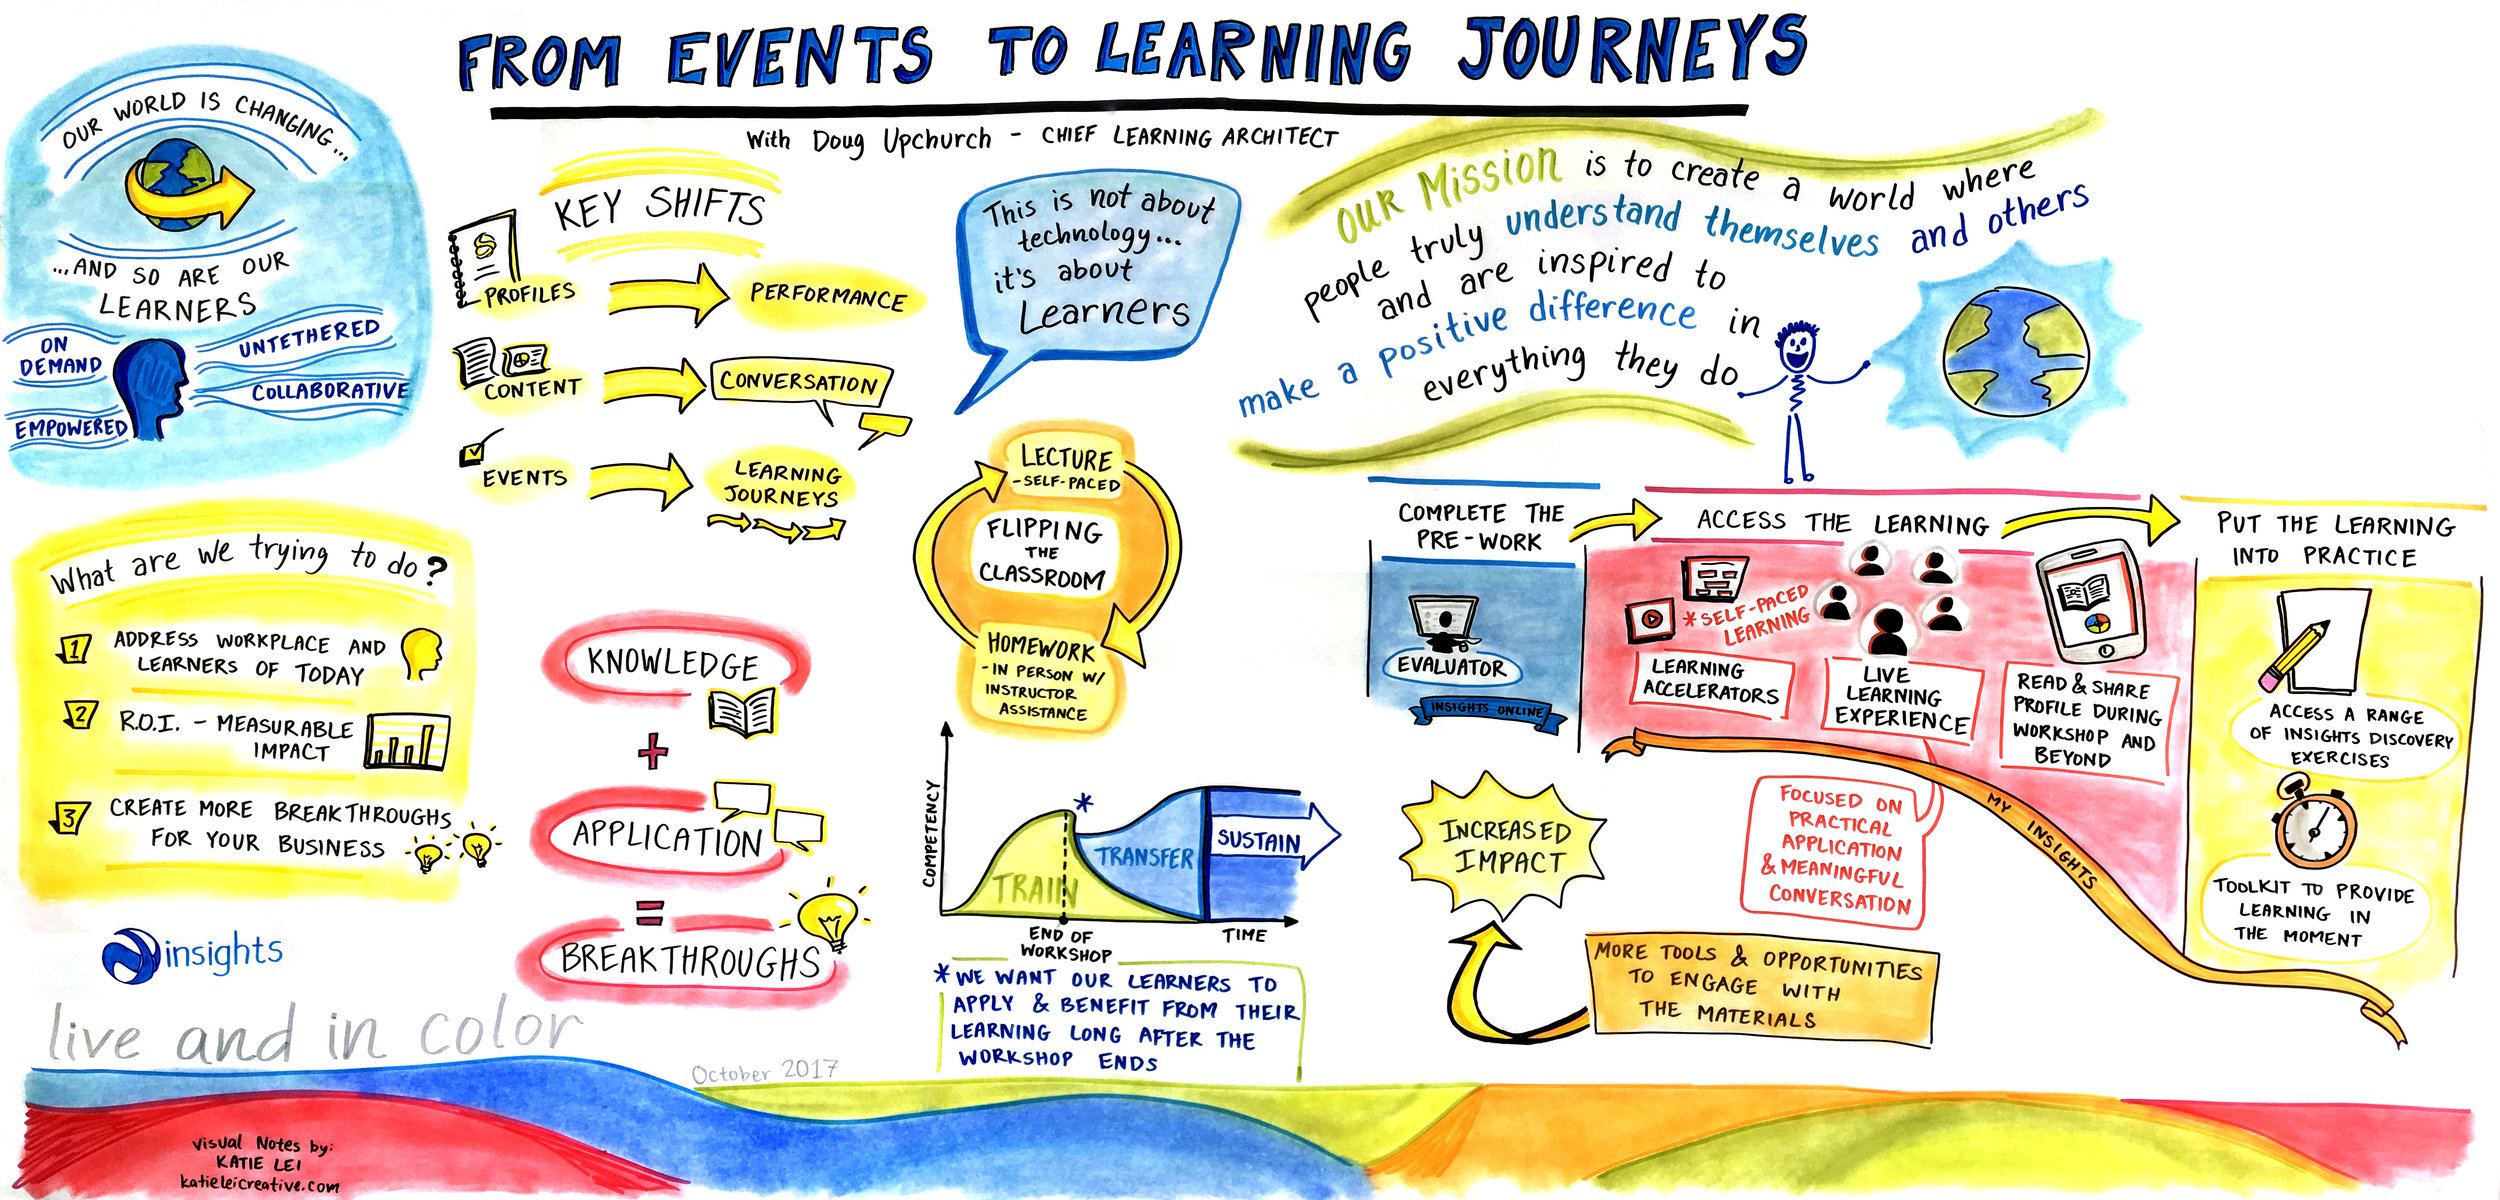 FROM EVENTS TO LEARNING JOURNEYS
With Doug Upchurch - CHIEF LEARNING ARCHITECT
OUR WORLD IS CHANGING...
...AND SO ARE OUR
LEARNERS
ON
DEMAND
UNTETHERED
COLLABORATIVE
EMPOWERED
What are we trying to do?
1 ADDRESS WORKPLACE AND
LEARNERS OF TODAY
2 R.O.I. - MEASURABLE
IMPACT
3 CREATE MORE BREAKTHROUGHS
FOR YOUR BUSINESS
insights
live and in color
October 2017
Visual Notes by:
KATIE LEI
katieleicreative.com
KEY SHIFTS
PROFILES
PERFORMANCE
CONTENT
CONVERSATION
EVENTS
LEARNING
JOURNEYS
KNOWLEDGE
+
APPLICATION
=
BREAKTHROUGHS
This is not about
technology...
it's about
Learners
LECTURE
-SELF-PACED
FLIPPING
THE
CLASSROOM
HOMEWORK
-IN PERSON W/
INSTRUCTOR
ASSISTANCE
COMPETENCY
TRAIN
*
TRANSFER
SUSTAIN
END OF
WORKSHOP
TIME
*WE WANT OUR LEARNERS TO
APPLY & BENEFIT FROM THEIR
LEARNING LONG AFTER THE
WORKSHOP ENDS
OUR MISSION is to create a world where
people truly understand themselves and others
and are inspired to
make a positive difference in
everything they do
COMPLETE THE
PRE-WORK
EVALUATOR
INSIGHTS ONLINE
ACCESS THE LEARNING
*SELF-PACED
LEARNING
LEARNING
ACCELERATORS
LIVE
LEARNING
EXPERIENCE
READ & SHARE
PROFILE DURING
WORKSHOP AND
BEYOND
FOCUSED ON
PRACTICAL
APPLICATION
& MEANINGFUL
CONVERSATION
MY INSIGHTS
PUT THE LEARNING
INTO PRACTICE
ACCESS A RANGE
OF INSIGHTS DISCOVERY
EXERCISES
TOOLKIT TO PROVIDE
LEARNING IN
THE MOMENT
INCREASED
IMPACT
MORE TOOLS & OPPORTUNITIES
TO ENGAGE WITH
THE MATERIALS